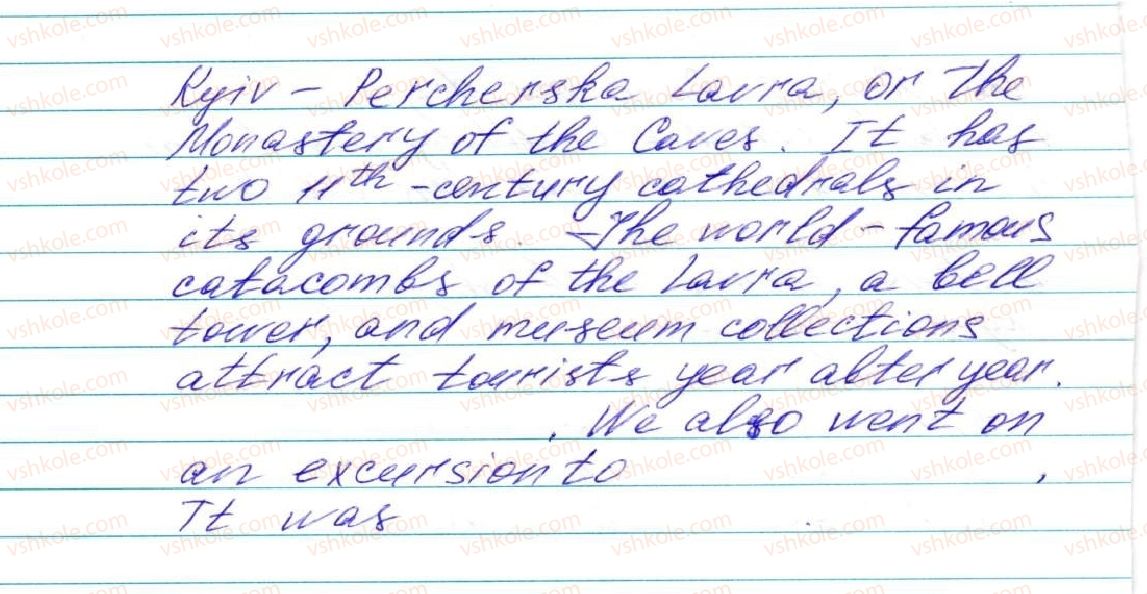 Kyiv - Percherska Lavra, or the
Monastery of the Caves. It has
two 11th-century cathedrals in
its grounds. The world-famous
catacombs of the Lavra, a bell
tower, and museum collections
attract tourists year after year.
. We also went on
an excursion to ,
It was